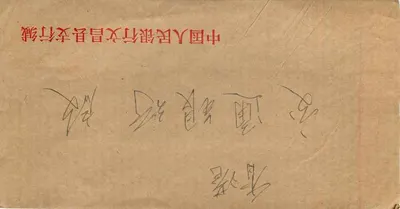 香港
交通银行
中国人民银行文昌县支行缄